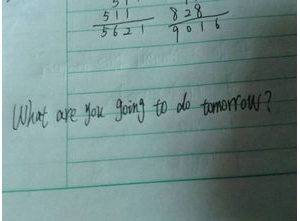 511 828
5621 9016
What are you going to do tomorrow?